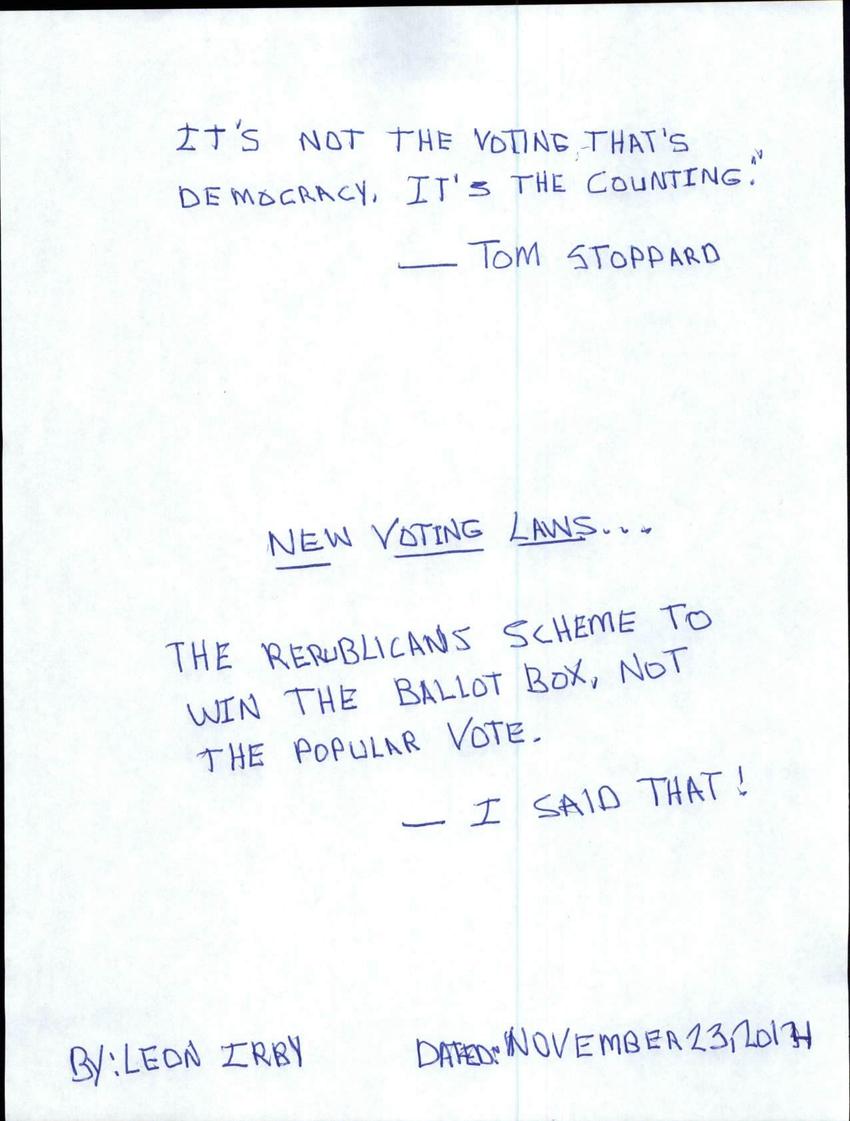 IT'S NOT THE VOTING THAT'S
DEMOCRACY, IT'S THE COUNTING."
— TOM STOPPARD
NEW VOTING LAWS...
THE REPUBLICANS SCHEME TO
WIN THE BALLOT BOX, NOT
THE POPULAR VOTE.
— I SAID THAT!
BY: LEON IRBY DATED: NOVEMBER 23,